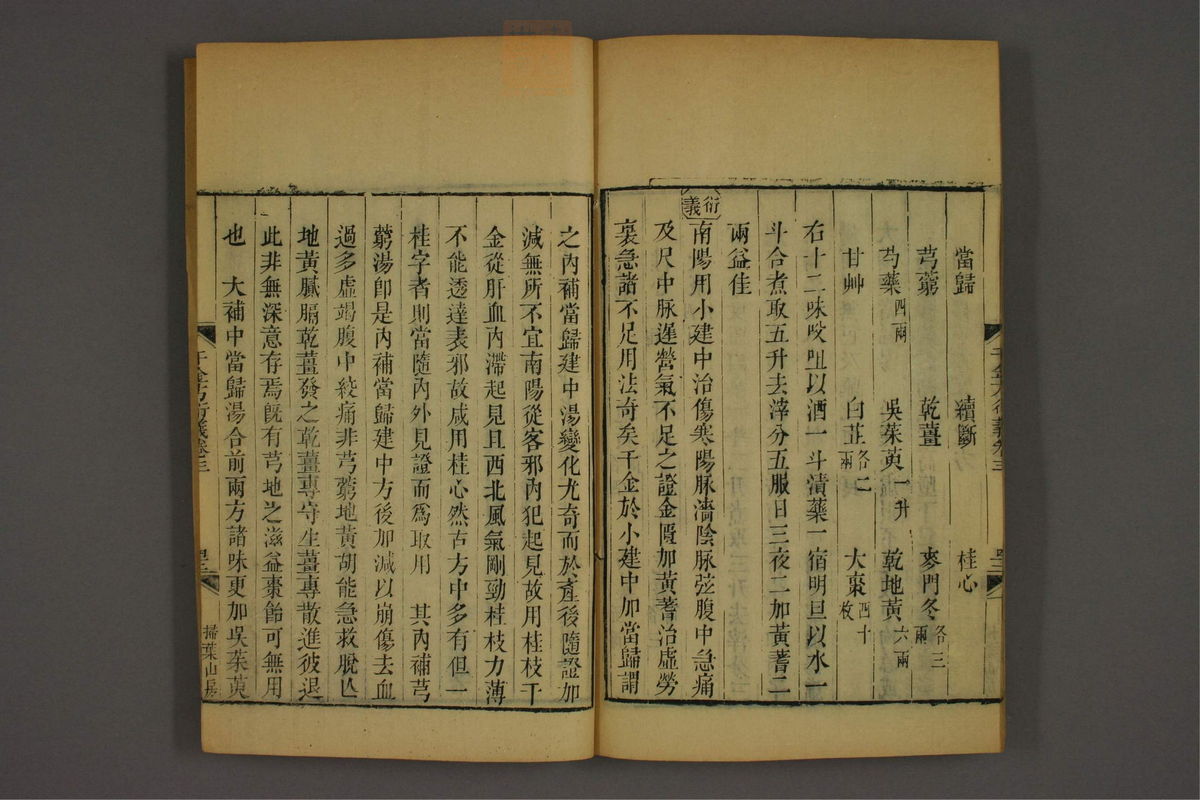 當歸 續斷 桂心
芎藭 乾薑 麥門冬各三兩
芍藥四兩 吳茱萸一升 乾地黃六兩
甘艸 白芷各二兩 大棗四十枚
右十二味㕮咀以酒一斗漬藥一宿明旦以水一
斗合煮取五升去滓分五服日三夜二加黃蓍二
兩益佳
衍義
南陽用小建中治傷寒陽脉濇陰脉弦腹中急痛
及尺中脉遲營氣不足之證金匱加黃蓍治虛勞
裏急諸不足用法奇矣千金於小建中加當歸謂
之內補當歸建中湯變化尤奇而於產後隨證加
減無所不宜南陽從客邪內犯起見故用桂枝千
金從肝血內滯起見且西北風氣剛勁桂枝力薄
不能透達表邪故咸用桂心然古方中多有但一
桂字者則當隨內外見證而爲取用 其內補芎
藭湯卽是內補當歸建中方後加減以崩傷去血
過多虛竭腹中絞痛非芎藭地黃胡能急救脫亾
地黃膩膈乾薑發之乾薑專守生薑專散進彼退
此非無深意存焉旣有芎地之滋益棗飴可無用
也 大補中當歸湯合前兩方諸味更加吳茱萸
千金方衍義卷三
掃葉山房